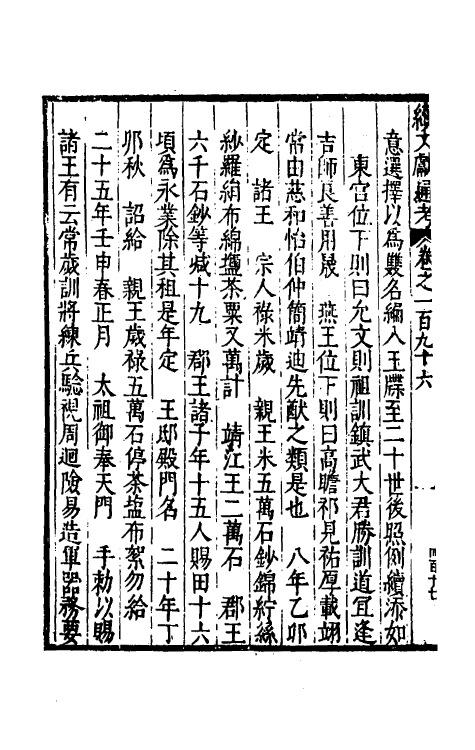 續文獻通考 卷之一百九十六
意選擇以爲雙名編入玉牒至二十世後照例續添如
東宮位下則曰允文則祖訓鎮武大君勝訓道冝逢
吉師良善用晟 燕王位下則曰高瞻祁見祐厚載翊
常由慈和怡伯仲簡靖迪先猷之類是也 八年乙卯
定 諸王 宗人祿米歲 親王米五萬石鈔錦紵絲
紗羅絹布綿塩茶粟又萬計 靖江王二萬石 郡王
六千石鈔等𡙇十九 郡王諸子年十五人賜田十六
頃爲永業除其租是年定 王邸殿門名 二十年丁
卯秋 詔給 親王歲祿五萬石停茶塩布絮勿給
二十五年壬申春正月 太祖御奉天門 手勅以賜
諸王有云常歲訓將練兵驗視周迴險易造軍器務要